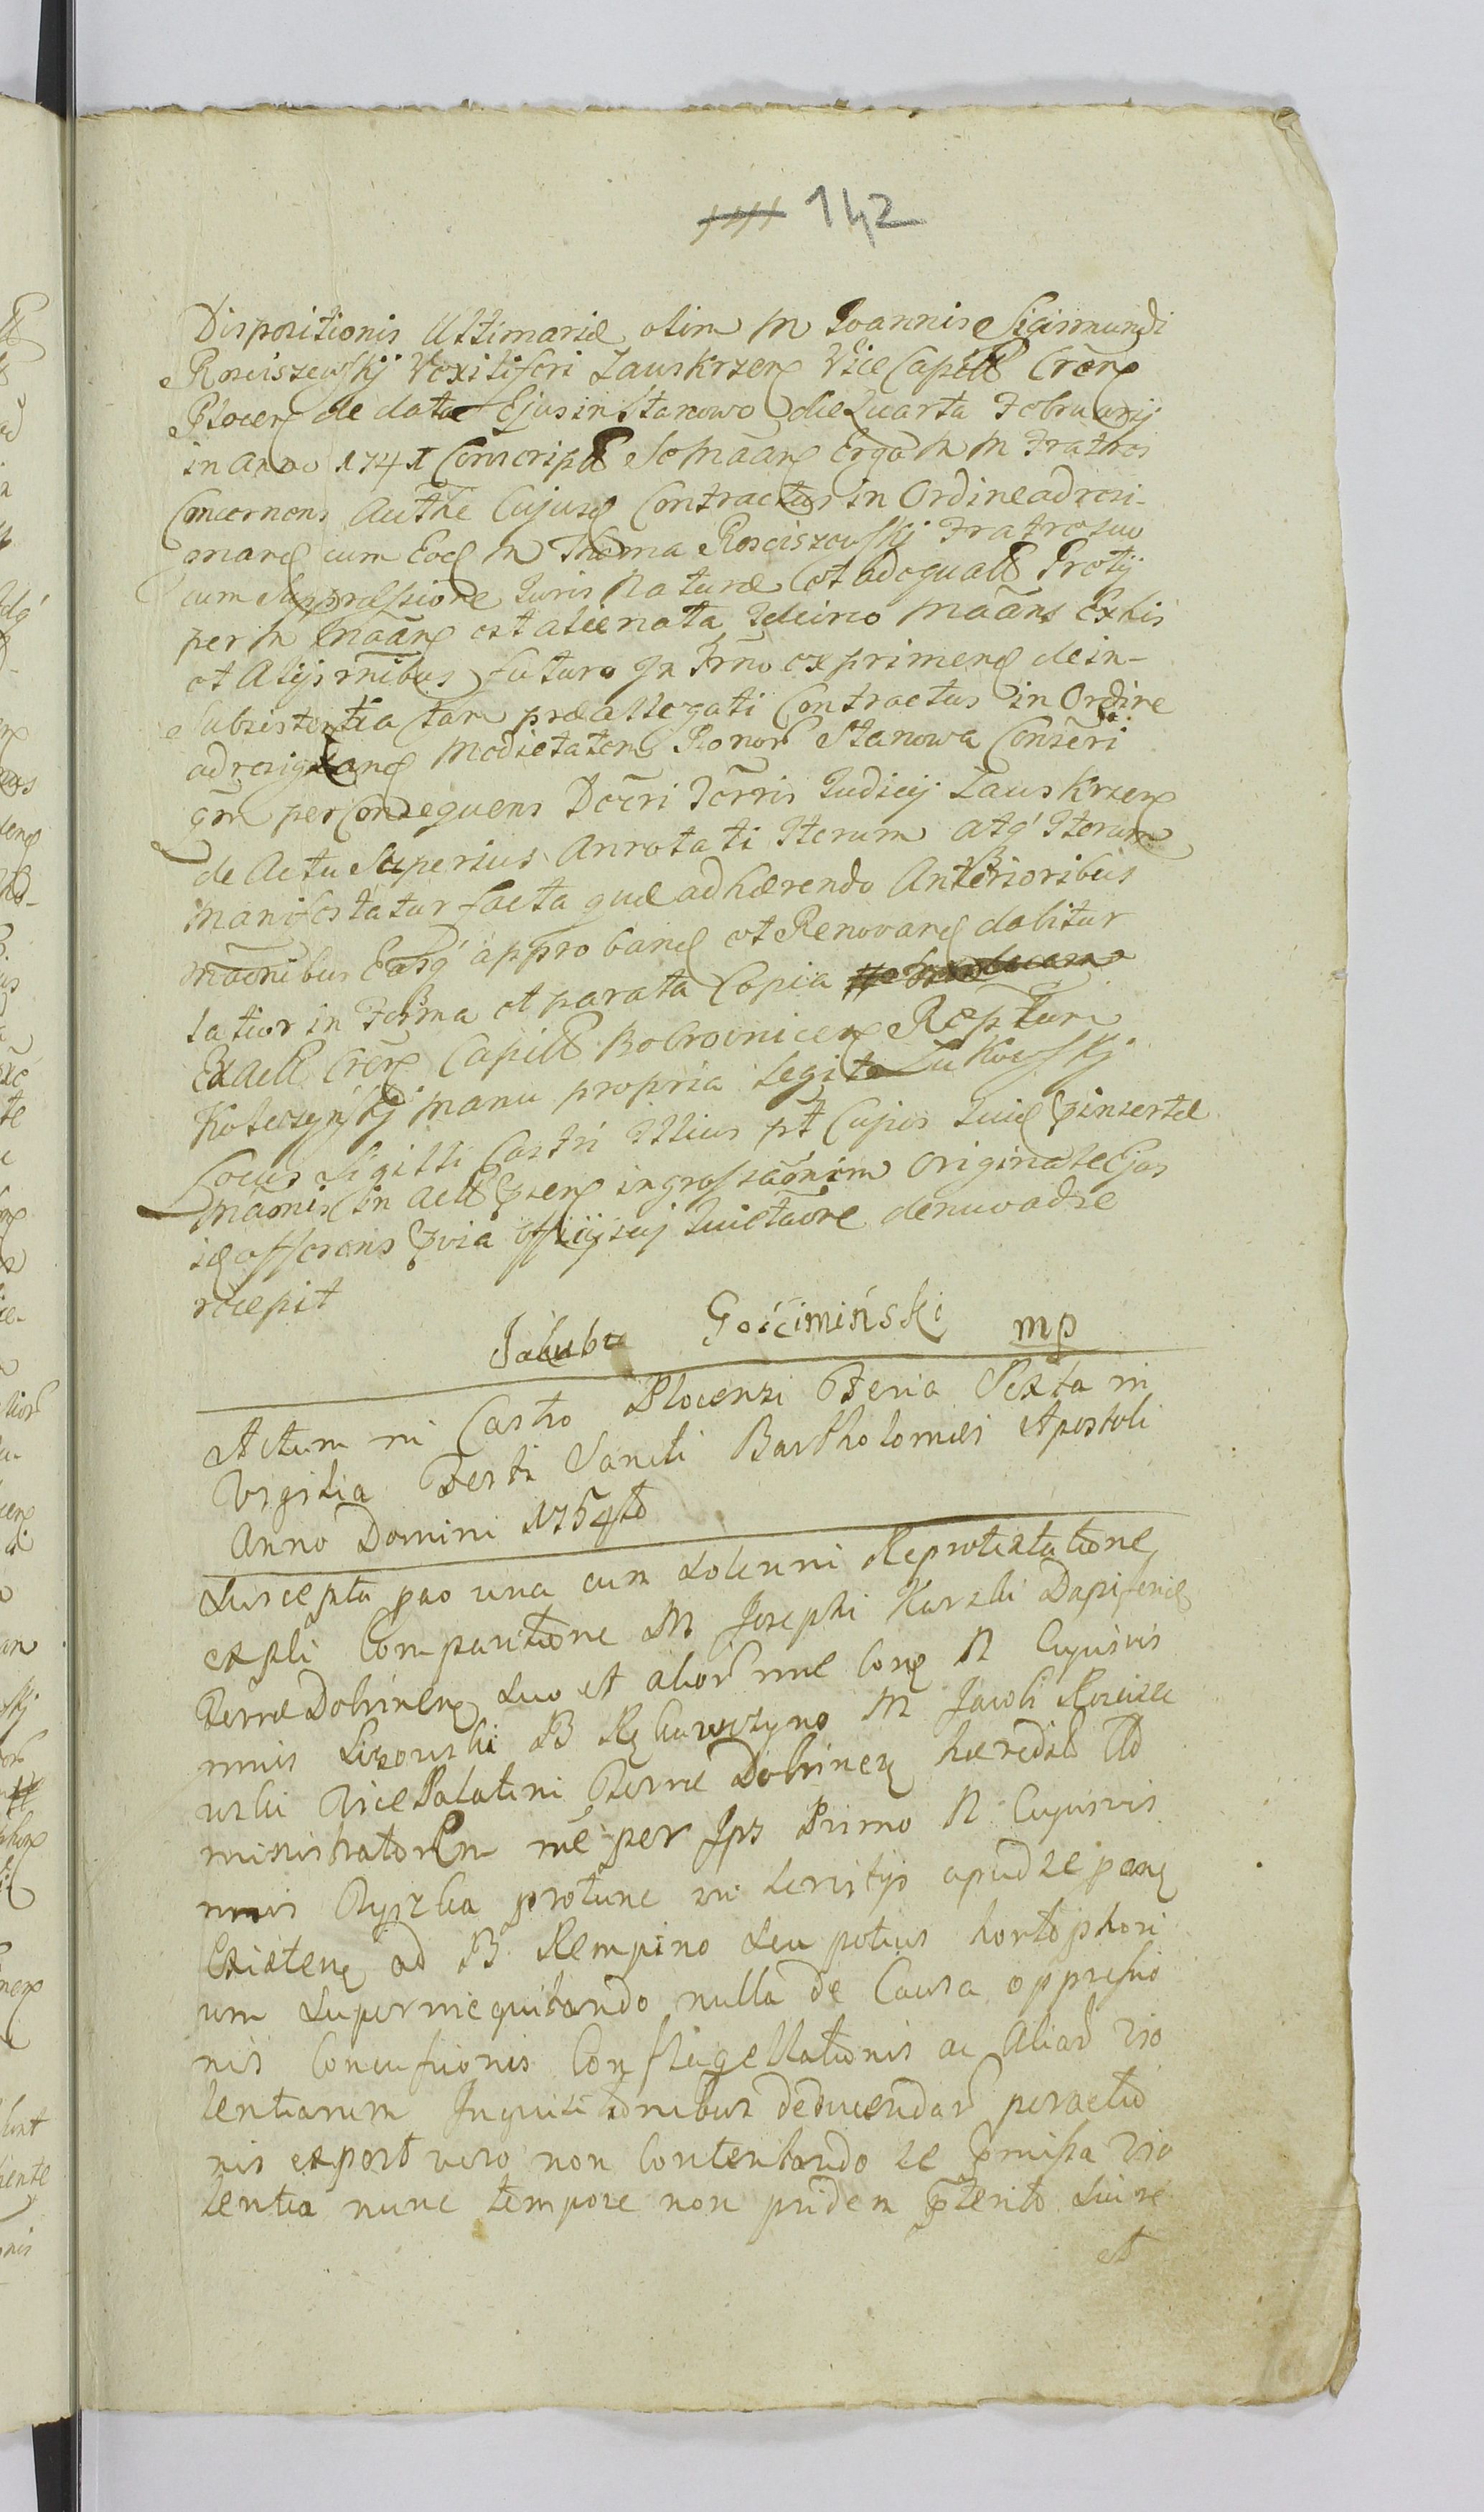 142
Dispositionis Ultimariæ olim M Joannis Sigismundi
Rosciszewskj Vexiliferi Zauskrzen Vice Capitt Cren
Plocen de data Ejus in Stanowo die Quarta Februarij
in anno 1741 Conscript se Mãan Erga M M Fratres
Concernens Authe Cujus Contractus in Ordine ad resi-
gnand cum Eod M Thoma Rosciszewskj Fratre suo
cum Suppressione Juris Naturæ et adequatt Pretij
per M Mãan est alienata Idcirco Mãans Ex his
et Alijs rnibus futuro In Trno exprimend de in-
subsistentia tam præallegati Contractus in Ordine
ad resignand Medietatem Bonor Stanowa Conseri
qm per Consequens Docri Torris Judicij Zauskrzen
de Actu Superius Annotati Iterum atq Iterum
Manifestatur facta quæ adhærendo Anterioribus
Mãonibus Easq approband et Renovand dabitur
latior in Forma et parata Copia
Ex actt Cren Capitt Bobrownicen Rept
Koteczynskj manu propria Legit Zukowskj
Locus Sigilli Castri Illius pt Cujus
Mãonis in actt pnen ingrossaõnem Originale Ejus
is offerens officij sui Quietaõne denuo ad se
recepit
Jakub Gościmiński mp
Actum in Castro Plocensi Feria Sexta in
Vigilia Festi Sancti Bartholomæi Apostoli
Anno Domini 1754to
Suscepta pao una cum solenni Reprotestatione
ex pli Comparitione M Josephi Karski Dapiferid
Terræ Dobrinen suo et alior nne Con N Cujusvis
nnis Lisowski B Rękawczyno M Jacobi Roscisze
wski Vice Palatini Terræ Dobrinen hæredit Ad
ministratorem né per Ips Primo N Cujusvis
nnis Ryszka protunc in servitijs apud se pane
Existen ad B Rempino seu potius hortophori
um supervieequitando nulla de Causa oppressio
nis Concussionis Conflagellationis ac Aliar vio
lentiarum Inquisitionibus deducendar peractio
nis ex post vero non Contentando se pmissa vio
lentia nunc tempore non pridem pterito
et